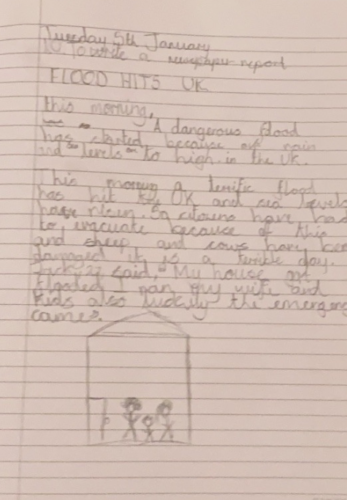 Tuesday 5th January
to write a newspaper report
FLOOD HITS UK
this morning,
A dangerous flood
has started because of rain
and levels to high in the UK.
This morning a terrific flood
has hit the UK and sea levels
have risen. So citizens have had
to evacuate because of this
and sheep and cows have been
damaged it is a terrible day.
Jack 27 said, "My house got
flooded I ran my wife and
kids also luckily the emergen
came.